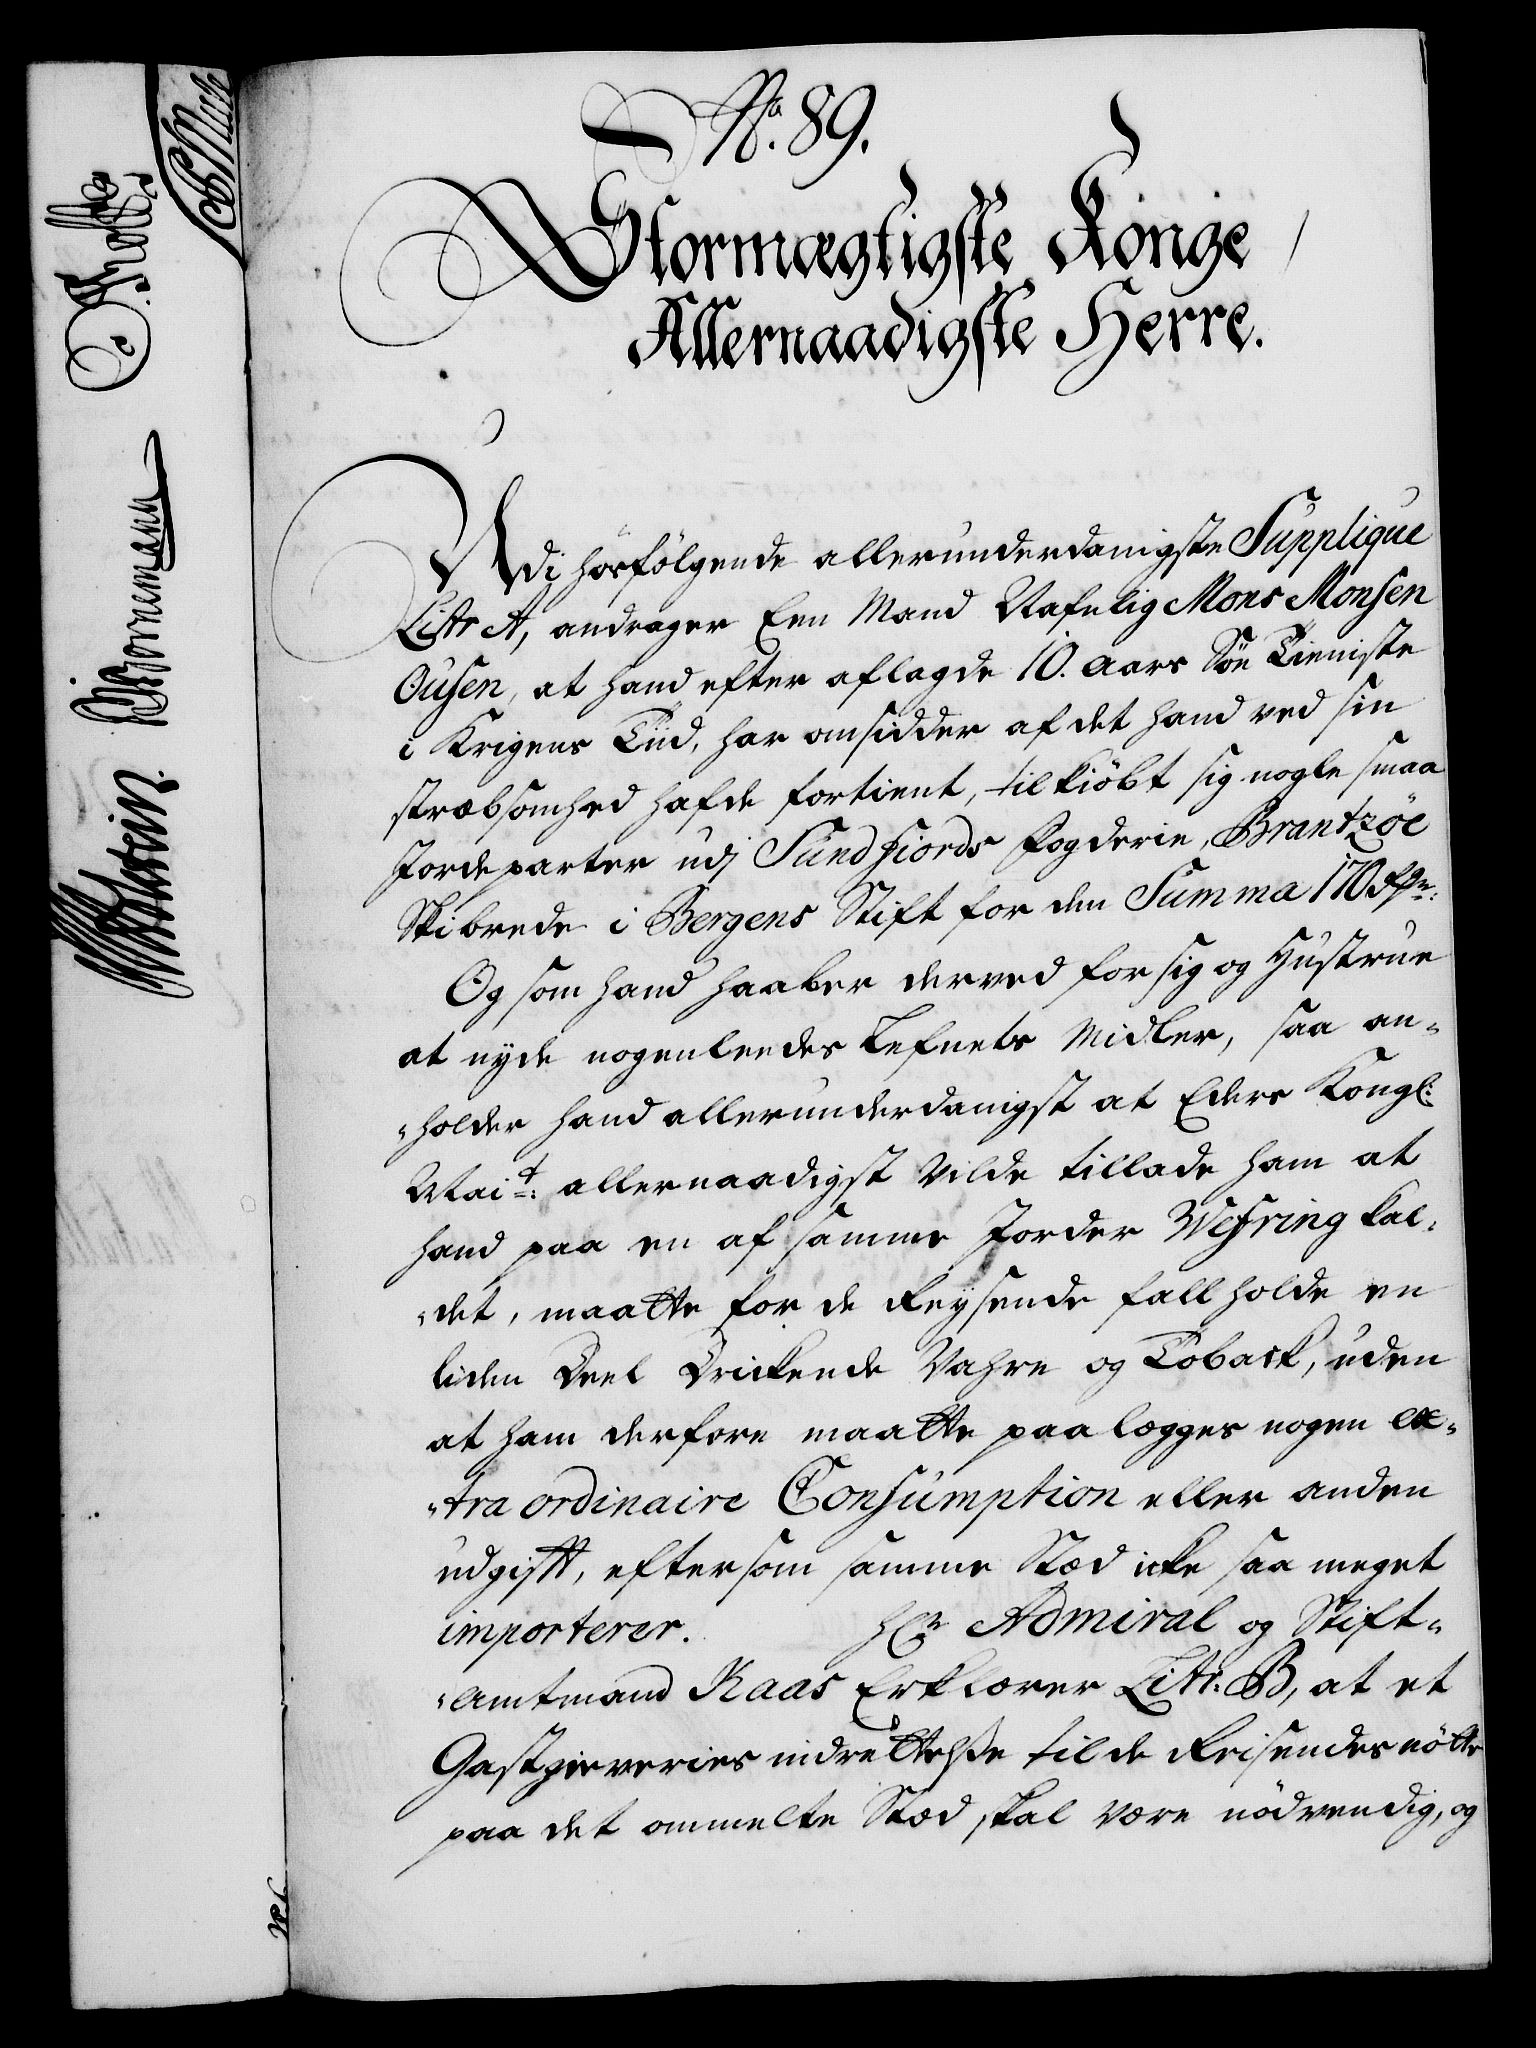 No. 89.
Stormægtigste Konge
Allernaadigste Herre.
Udi hosfölgende allerunderdanigste Supplique
Litr A, andrager Een Mand Nafnlig Mons Monsen
Ousen, at hand efter aflagde 10. aars Söe Tieniste
i Krigens Tiid, har omsidder af det hand ved sin
stræbsomhed hafde fortient, tilkiöbt sig nogle smaa
Jordeparter udj Sundfiords fogderie, Brantzöe
Skibrede i Bergens Stift for den Summa 170 rdr:
Og som hand haaber derved for sig og Hustrue
at nyde nogenleedes Lefnets Midler, saa an-
-holder hand allerunderdanigst at Eders Kongl:
Mait: allernaadigst vilde tillade ham at
hand paa en af samme Jorder Wefring kal-
-det, maatte for de Reysende fall holde en
liden Deel Drickende Vahre og Toback, uden
at ham derfore maatte paalegges nogen ex-
-tra ordinaire Consumption eller anden
udgifft, eftersom samme Stæd icke saa meget
importerer. Hr Admiral og Stift-
-amtmand Kaas Erklærer Litr. B, at et
Gastgieveries indrettelsse til de Reisendes nötte
paa det ommelte Stæd skal være nödvendig, og
Bornemann
Holstein